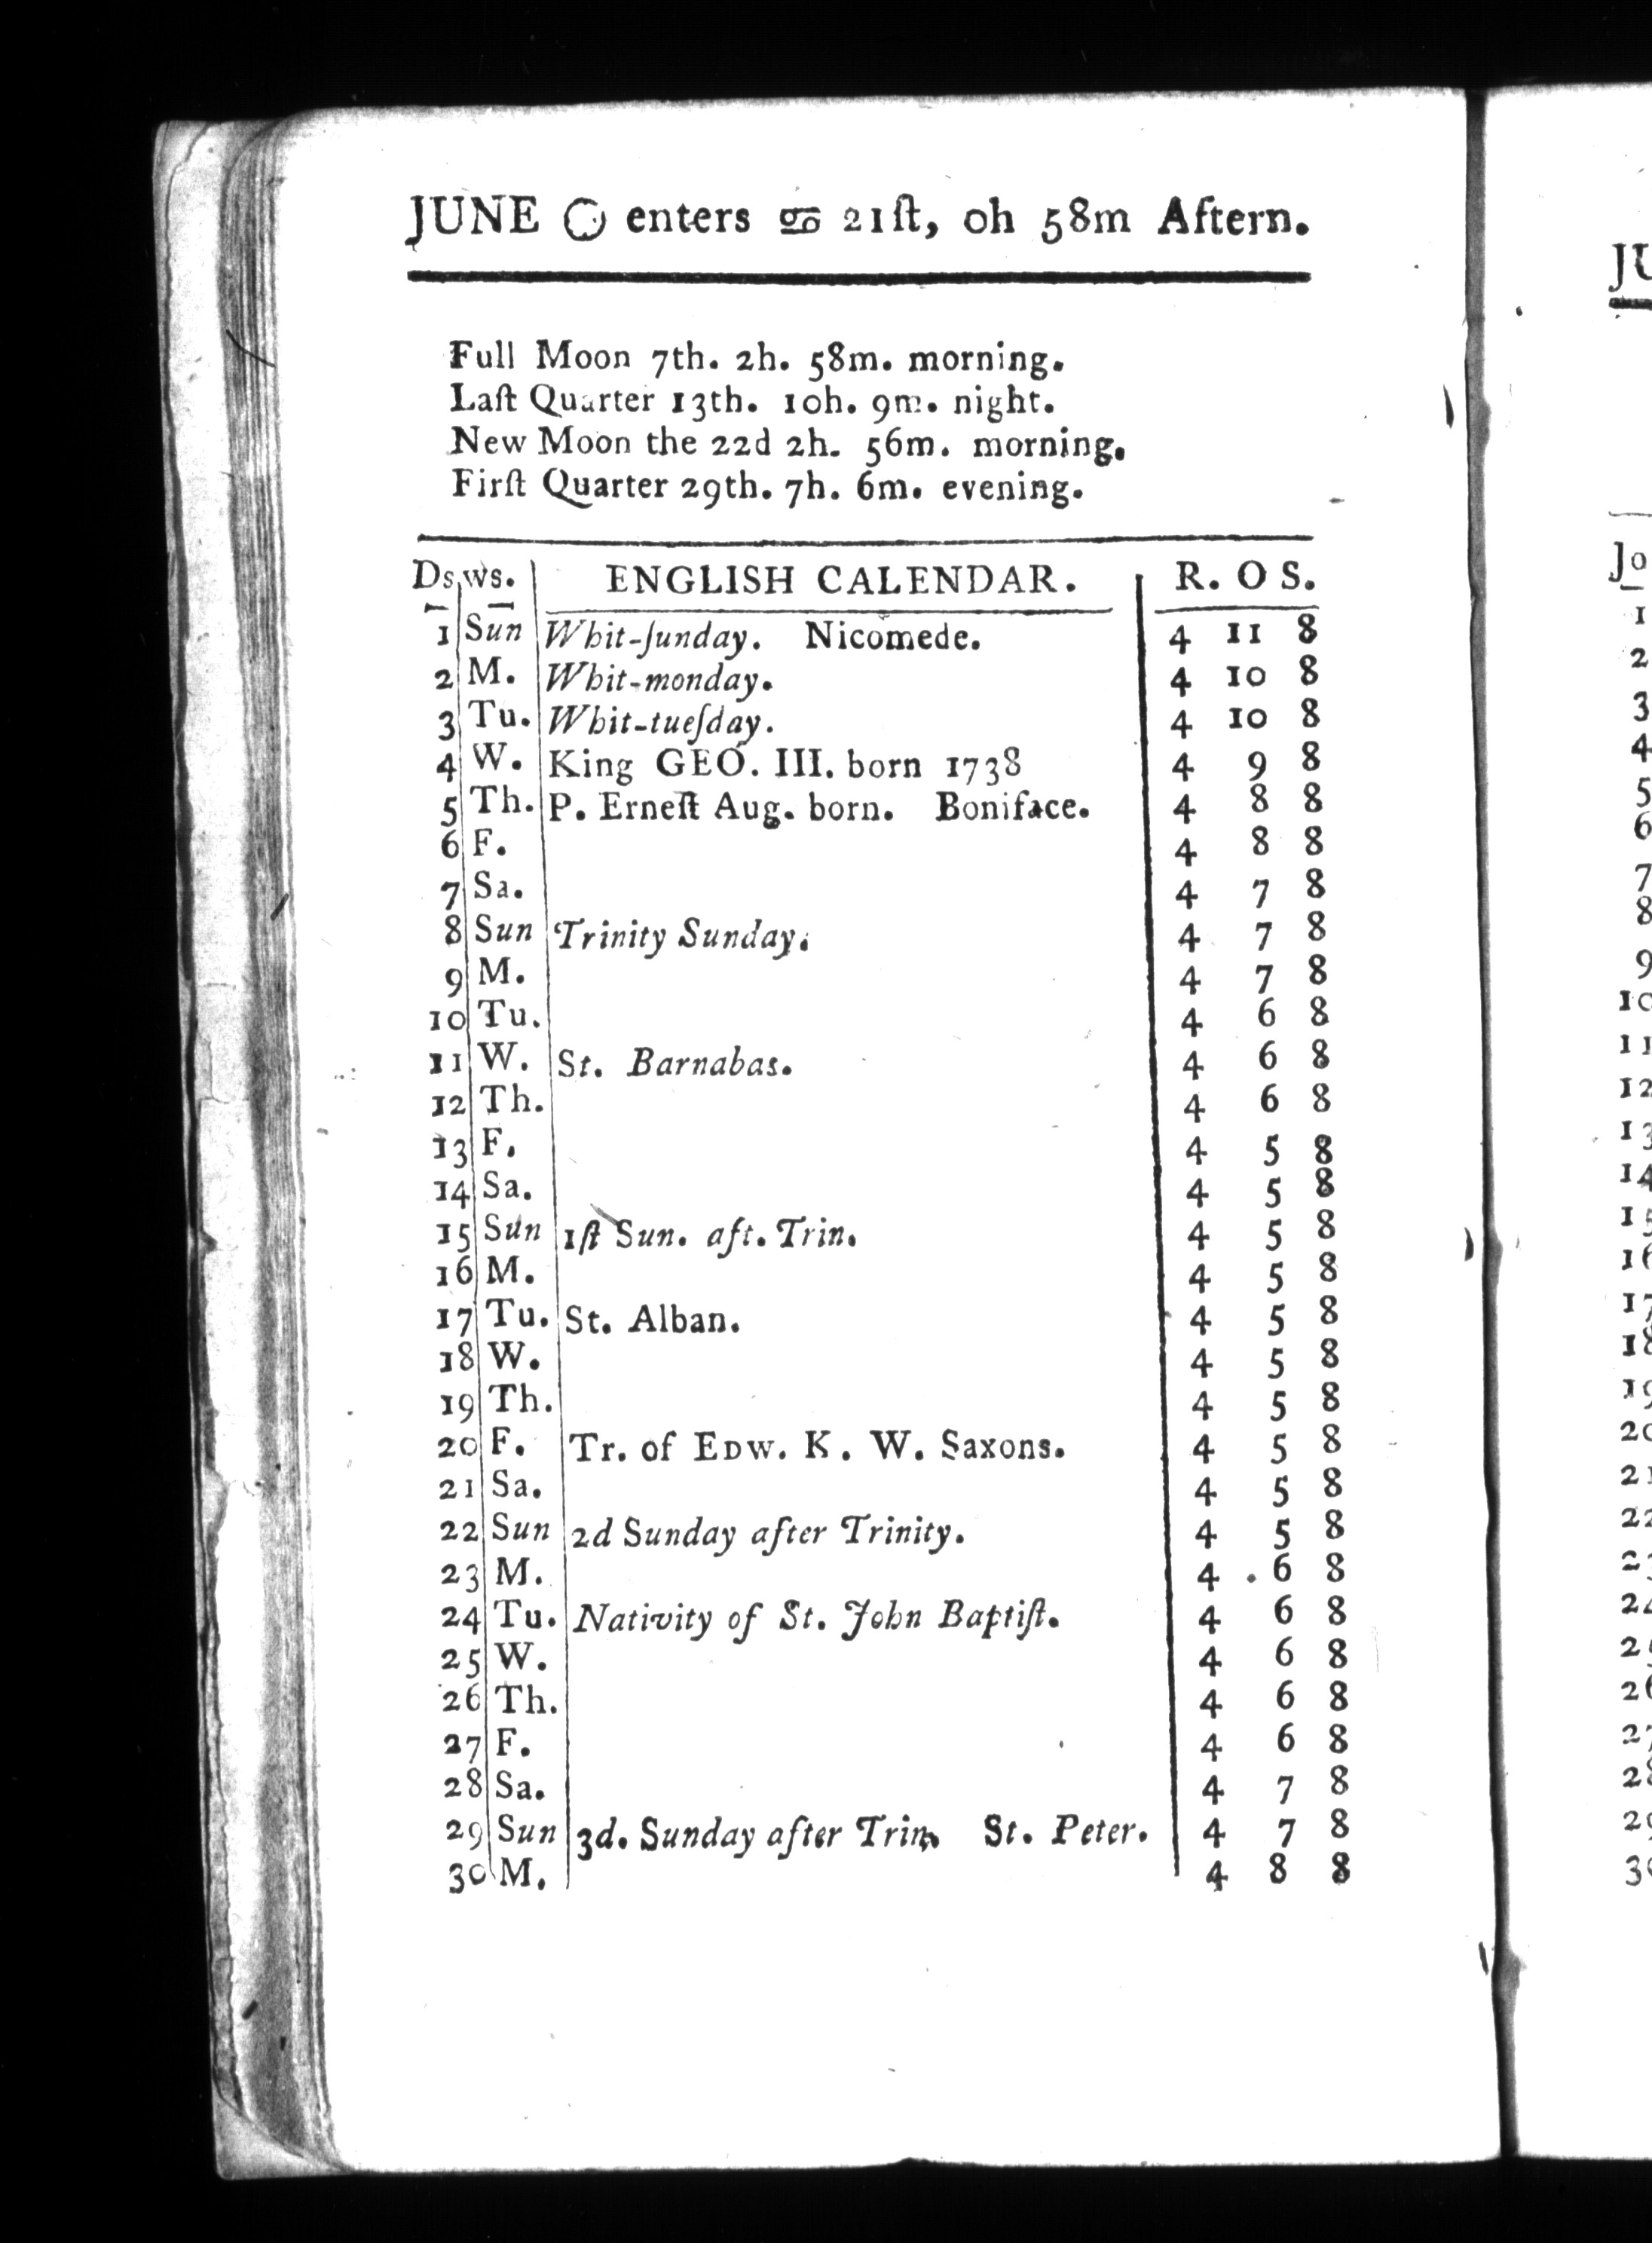 JUNE ☉ enters ♋ 21ſt, 0h 58m Aftern.
Full Moon 7th. 2h. 58m. morning.
Laſt Quarter 13th. 10h. 9m. night.
New Moon the 22d 2h. 56m. morning.
Firſt Quarter 29th. 7h. 6m. evening.
Ds ws. ENGLISH CALENDAR. R. O S.
1 Sun Whit-ſunday. Nicomede. 4 11 8
2 M. Whit-monday. 4 10 8
3 Tu. Whit-tueſday. 4 10 8
4 W. King GEO. III. born 1738 4 9 8
5 Th. P. Erneſt Aug. born. Boniface. 4 8 8
6 F. 4 8 8
7 Sa. 4 7 8
8 Sun Trinity Sunday. 4 7 8
9 M. 4 7 8
10 Tu. 4 6 8
11 W. St. Barnabas. 4 6 8
12 Th. 4 6 8
13 F. 4 5 8
14 Sa. 4 5 8
15 Sun 1ſt Sun. aft. Trin. 4 5 8
16 M. 4 5 8
17 Tu. St. Alban. 4 5 8
18 W. 4 5 8
19 Th. 4 5 8
20 F. Tr. of EDW. K. W. Saxons. 4 5 8
21 Sa. 4 5 8
22 Sun 2d Sunday after Trinity. 4 5 8
23 M. 4 6 8
24 Tu. Nativity of St. John Baptiſt. 4 6 8
25 W. 4 6 8
26 Th. 4 6 8
27 F. 4 6 8
28 Sa. 4 7 8
29 Sun 3d. Sunday after Trin. St. Peter. 4 7 8
30 M. 4 8 8